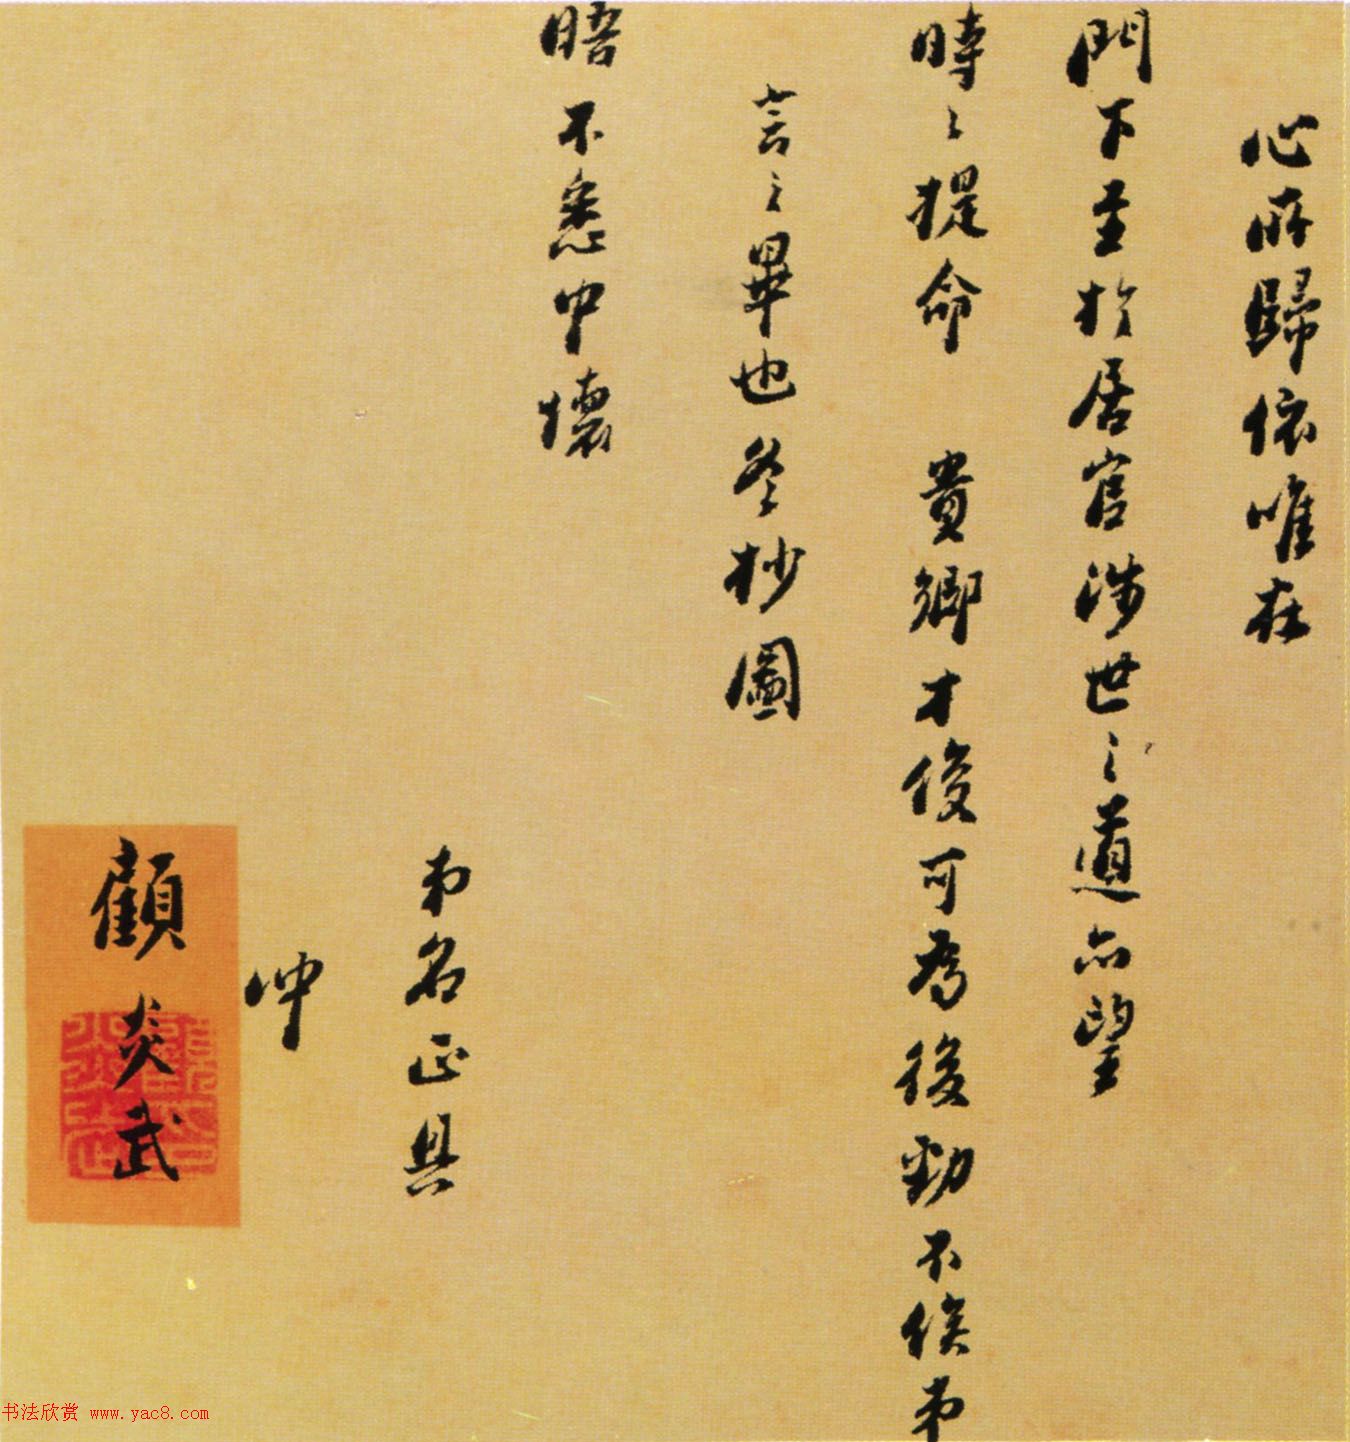 心所歸依唯在
門下至於居官涉世之道亦望
時〻提命 貴鄉才俊可為後勁不俟弟
言之畢也冬抄圖
晤不悉中懷
弟名正具
冲
顧炎武
书法欣赏 www.yac8.com